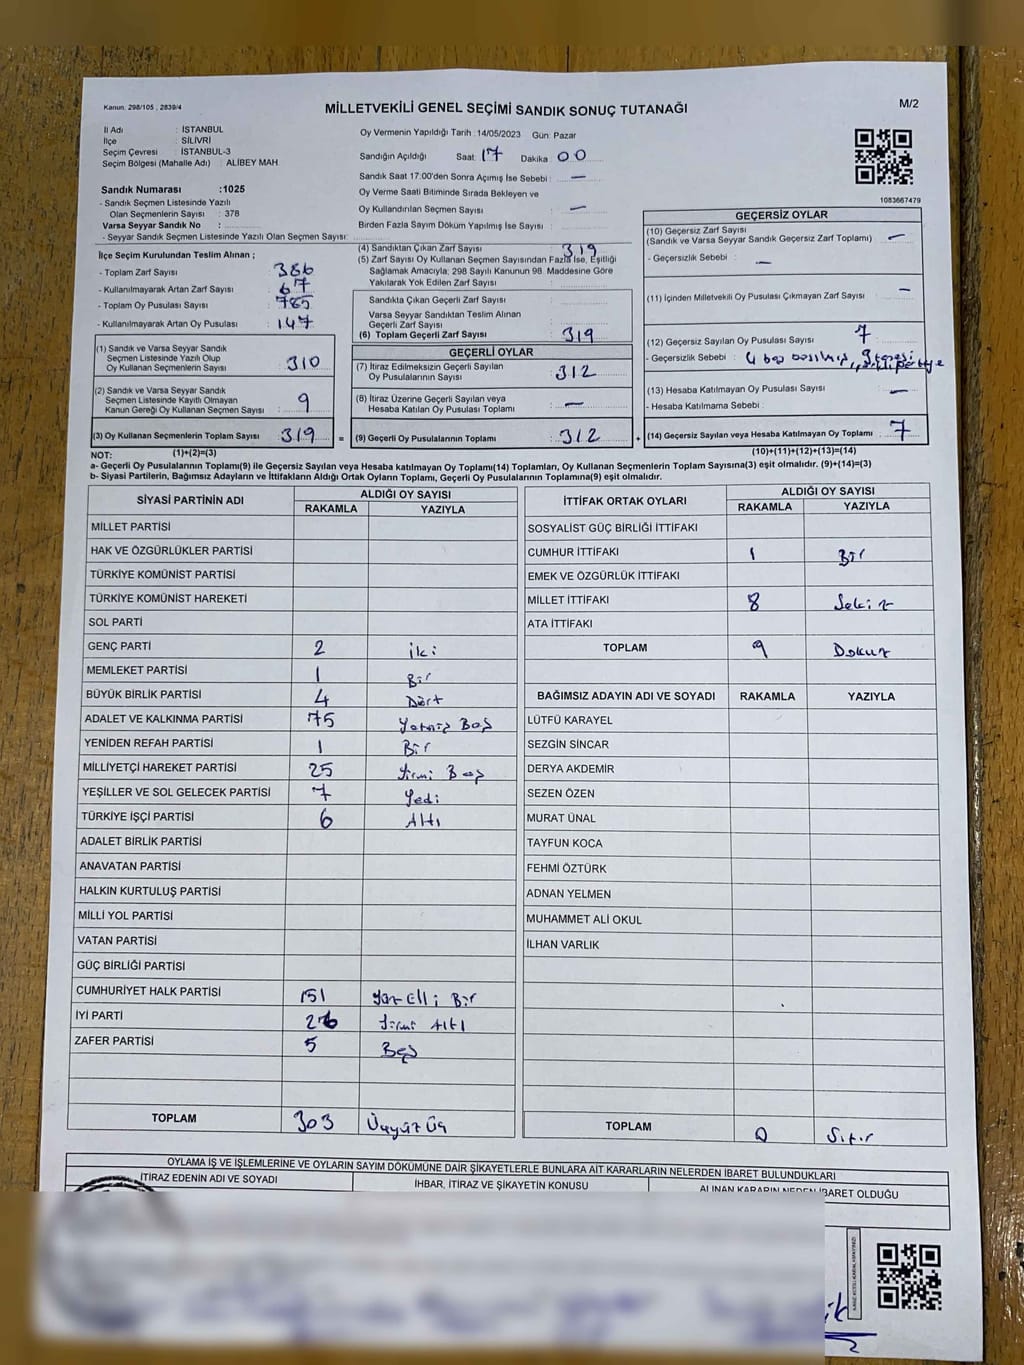 Kanun. 298/105 ; 2839/4
MİLLETVEKİLİ GENEL SEÇİMİ SANDIK SONUÇ TUTANAĞI
M/2
İl Adı : İSTANBUL
İlçe : SİLİVRİ
Seçim Çevresi : İSTANBUL-3
Seçim Bölgesi (Mahalle Adı) : ALİBEY MAH.
Sandık Numarası :1025
- Sandık Seçmen Listesinde Yazılı
Olan Seçmenlerin Sayısı : 378
Varsa Seyyar Sandık No :
- Seyyar Sandık Seçmen Listesinde Yazılı Olan Seçmen Sayısı:
Oy Vermenin Yapıldığı Tarih : 14/05/2023 Gün: Pazar
Sandığın Açıldığı Saat 17 Dakika 00
Sandık Saat 17:00'den Sonra Açımış İse Sebebi : —
Oy Verme Saati Bitiminde Sırada Bekleyen ve
Oy Kullandırılan Seçmen Sayısı : —
Birden Fazla Sayım Döküm Yapılmış İse Sayısı :
1083667479
İlçe Seçim Kurulundan Teslim Alınan ;
- Toplam Zarf Sayısı : 386
- Kullanılmayarak Artan Zarf Sayısı : 67
- Toplam Oy Pusulası Sayısı : 785
- Kullanılmayarak Artan Oy Pusulası : 147
(1) Sandık ve Varsa Seyyar Sandık
Seçmen Listesinde Yazılı Olup
Oy Kullanan Seçmenlerin Sayısı : 310
(2) Sandık ve Varsa Seyyar Sandık
Seçmen Listesinde Kayıtlı Olmayan
Kanun Gereği Oy Kullanan Seçmen Sayısı : 9
(3) Oy Kullanan Seçmenlerin Toplam Sayısı : 319 =
(1)+(2)=(3)
(4) Sandıktan Çıkan Zarf Sayısı : 319
(5) Zarf Sayısı Oy Kullanan Seçmen Sayısından Fazla İse, Eşitliği
Sağlamak Amacıyla; 298 Sayılı Kanunun 98. Maddesine Göre
Yakılarak Yok Edilen Zarf Sayısı :
Sandıkta Çıkan Geçerli Zarf Sayısı :
Varsa Seyyar Sandıktan Teslim Alınan
Geçerli Zarf Sayısı :
(6) Toplam Geçerli Zarf Sayısı : 319
GEÇERLİ OYLAR
(7) İtiraz Edilmeksizin Geçerli Sayılan
Oy Pusulalarının Sayısı : 312
(8) İtiraz Üzerine Geçerli Sayılan veya
Hesaba Katılan Oy Pusulası Toplamı : —
(9) Geçerli Oy Pusulalarının Toplamı : 312 +
GEÇERSİZ OYLAR
(10) Geçersiz Zarf Sayısı
(Sandık ve Varsa Seyyar Sandık Geçersiz Zarf Toplamı) : —
- Geçersizlik Sebebi : —
(11) İçinden Milletvekili Oy Pusulası Çıkmayan Zarf Sayısı : —
(12) Geçersiz Sayılan Oy Pusulası Sayısı : 7
- Geçersizlik Sebebi : 4 boş
(13) Hesaba Katılmayan Oy Pusulası Sayısı : —
- Hesaba Katılmama Sebebi :
(14) Geçersiz Sayılan veya Hesaba Katılmayan Oy Toplamı : 7
(10)+(11)+(12)+(13)=(14)
NOT:
a- Geçerli Oy Pusulalarının Toplamı(9) ile Geçersiz Sayılan veya Hesaba katılmayan Oy Toplamı(14) Toplamları, Oy Kullanan Seçmenlerin Toplam Sayısına(3) eşit olmalıdır. (9)+(14)=(3)
b- Siyasi Partilerin, Bağımsız Adayların ve İttifakların Aldığı Ortak Oyların Toplamı, Geçerli Oy Pusulalarının Toplamına(9) eşit olmalıdır.
SİYASİ PARTİNİN ADI ALDIĞI OY SAYISI
RAKAMLA YAZIYLA
MİLLET PARTİSİ
HAK VE ÖZGÜRLÜKLER PARTİSİ
TÜRKİYE KOMÜNİST PARTİSİ
TÜRKİYE KOMÜNİST HAREKETİ
SOL PARTİ
GENÇ PARTİ 2 İki
MEMLEKET PARTİSİ 1 Bir
BÜYÜK BİRLİK PARTİSİ 4 Dört
ADALET VE KALKINMA PARTİSİ 75 Yetmiş Beş
YENİDEN REFAH PARTİSİ 1 Bir
MİLLİYETÇİ HAREKET PARTİSİ 25 Yirmi Beş
YEŞİLLER VE SOL GELECEK PARTİSİ 7 Yedi
TÜRKİYE İŞÇİ PARTİSİ 6 Altı
ADALET BİRLİK PARTİSİ
ANAVATAN PARTİSİ
HALKIN KURTULUŞ PARTİSİ
MİLLİ YOL PARTİSİ
VATAN PARTİSİ
GÜÇ BİRLİĞİ PARTİSİ
CUMHURİYET HALK PARTİSİ 151 Yüz Elli Bir
İYİ PARTİ 26 Yirmi Altı
ZAFER PARTİSİ 5 Beş
TOPLAM 303 Üçyüz Üç
İTTİFAK ORTAK OYLARI ALDIĞI OY SAYISI
RAKAMLA YAZIYLA
SOSYALİST GÜÇ BİRLİĞİ İTTİFAKI
CUMHUR İTTİFAKI 1 Bir
EMEK VE ÖZGÜRLÜK İTTİFAKI
MİLLET İTTİFAKI 8 Sekiz
ATA İTTİFAKI
TOPLAM 9 Dokuz
BAĞIMSIZ ADAYIN ADI VE SOYADI RAKAMLA YAZIYLA
LÜTFÜ KARAYEL
SEZGİN SİNCAR
DERYA AKDEMİR
SEZEN ÖZEN
MURAT ÜNAL
TAYFUN KOCA
FEHMİ ÖZTÜRK
ADNAN YELMEN
MUHAMMET ALİ OKUL
İLHAN VARLIK
TOPLAM 0 Sıfır
OYLAMA İŞ VE İŞLEMLERİNE VE OYLARIN SAYIM DÖKÜMÜNE DAİR ŞİKAYETLERLE BUNLARA AİT KARARLARIN NELERDEN İBARET BULUNDUKLARI
İTİRAZ EDENİN ADI VE SOYADI İHBAR, İTİRAZ VE ŞİKAYETİN KONUSU ALINAN KARARIN NEDEN İBARET OLDUĞU